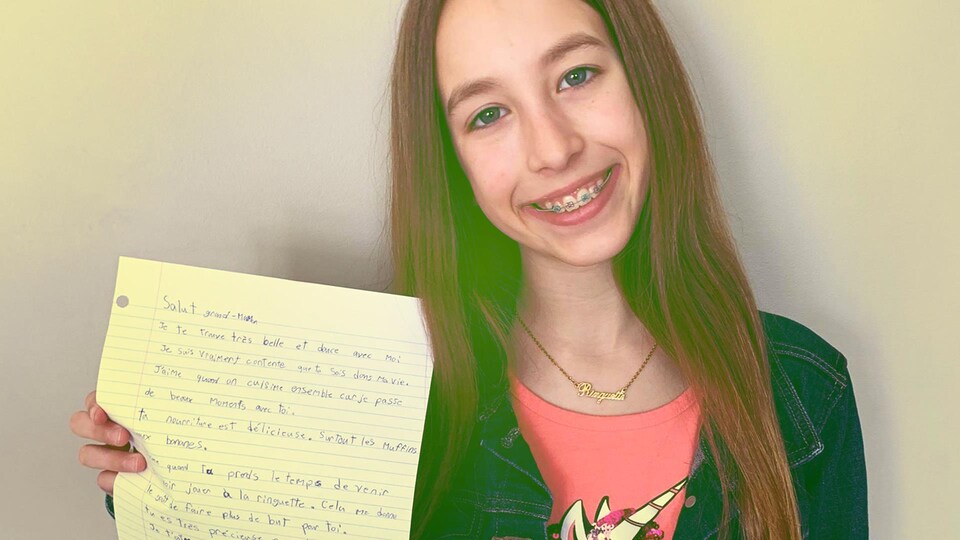 Salut grand-Maman
Je te trouve très belle et douce avec moi
Je suis vraiment contente que tu sois dans ma vie.
J'aime quand on cuisine ensemble car je passe
de beaux moments avec toi.
Ta nourriture est délicieuse. Surtout les muffins
aux bananes.
quand tu prends le temps de venir
voir jouer à la ringuette. Cela me donne
le goût de faire plus de but pour toi.
tu es très précieuse
Je t'aime
Ringuette